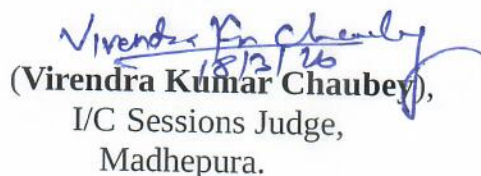 Virendra Kr Chaubey
18/3/26
(Virendra Kumar Chaubey),
I/C Sessions Judge,
Madhepura.